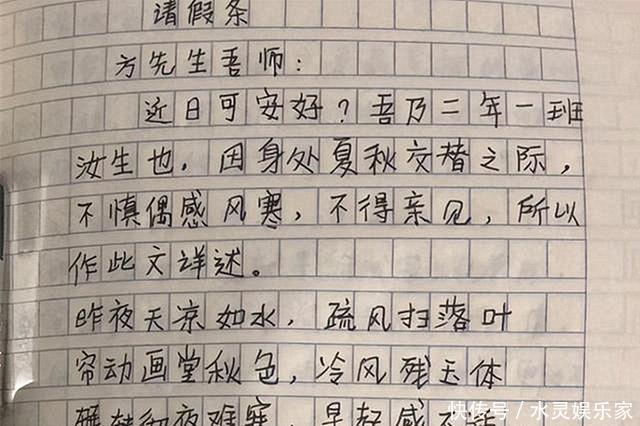 请假条
方先生吾师：
近日可安好？吾乃二年一班
汝生也，因身处夏秋交替之际，
不慎偶感风寒，不得亲见，所以
作此文详述。
昨夜天凉如水，疏风扫落叶
帘动画堂秋色，冷风残玉体
彻夜难寐，早起感不
快传号／水灵娱乐家